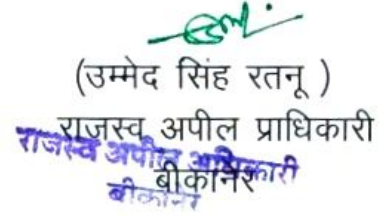 (उम्मेद सिंह रतनू )
राजस्व अपील प्राधिकारी
राजस्व अपील अधिकारी
बीकानेर
बीकानेर